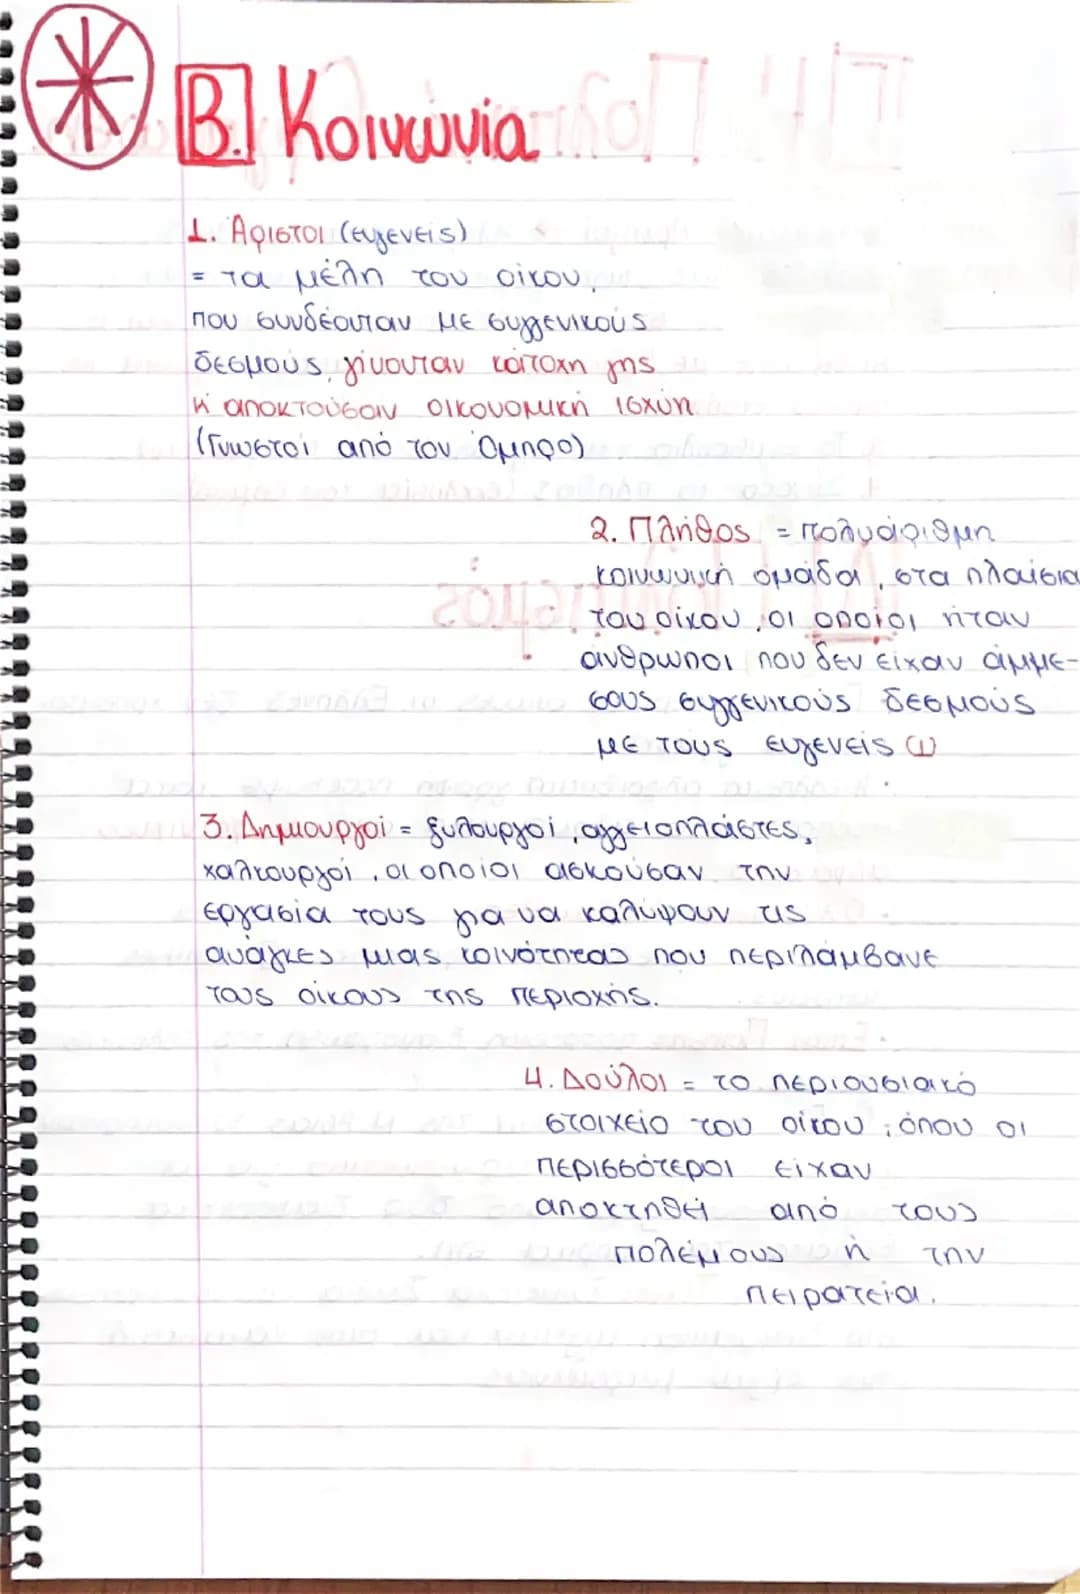 Β. Κοινωνία
1. Άριστοι (ευγενείς)
= τα μέλη του οίκου,
που συνδέονταν με συγγενικούς
δεσμούς, γίνονταν κάτοχη γης
κ' αποκτούσαν οικονομική ισχύη
(Γνωστοί από τον Όμηρο)
2. Πλήθος = πολυάριθμη
κοινωνική ομάδα, στα πλαίσια
του οίκου, οι οποίοι ήταν
άνθρωποι που δεν είχαν άμμε-
σους συγγενικούς δεσμούς
με τους ευγενείς (1)
3. Δημιουργοί = ξυλουργοί, αγγειοπλάστες,
χαλκουργοί, οι οποίοι ασκούσαν την
εργασία τους για να καλύψουν τις
ανάγκες μιας κοινότητας που περιλάμβανε
τους οίκους της περιοχής.
4. Δούλοι = το περιουσιακό
στοιχείο του οίκου, όπου οι
περισσότεροι είχαν
αποκτηθεί από τους
πολέμους ή την
πειρατεία.